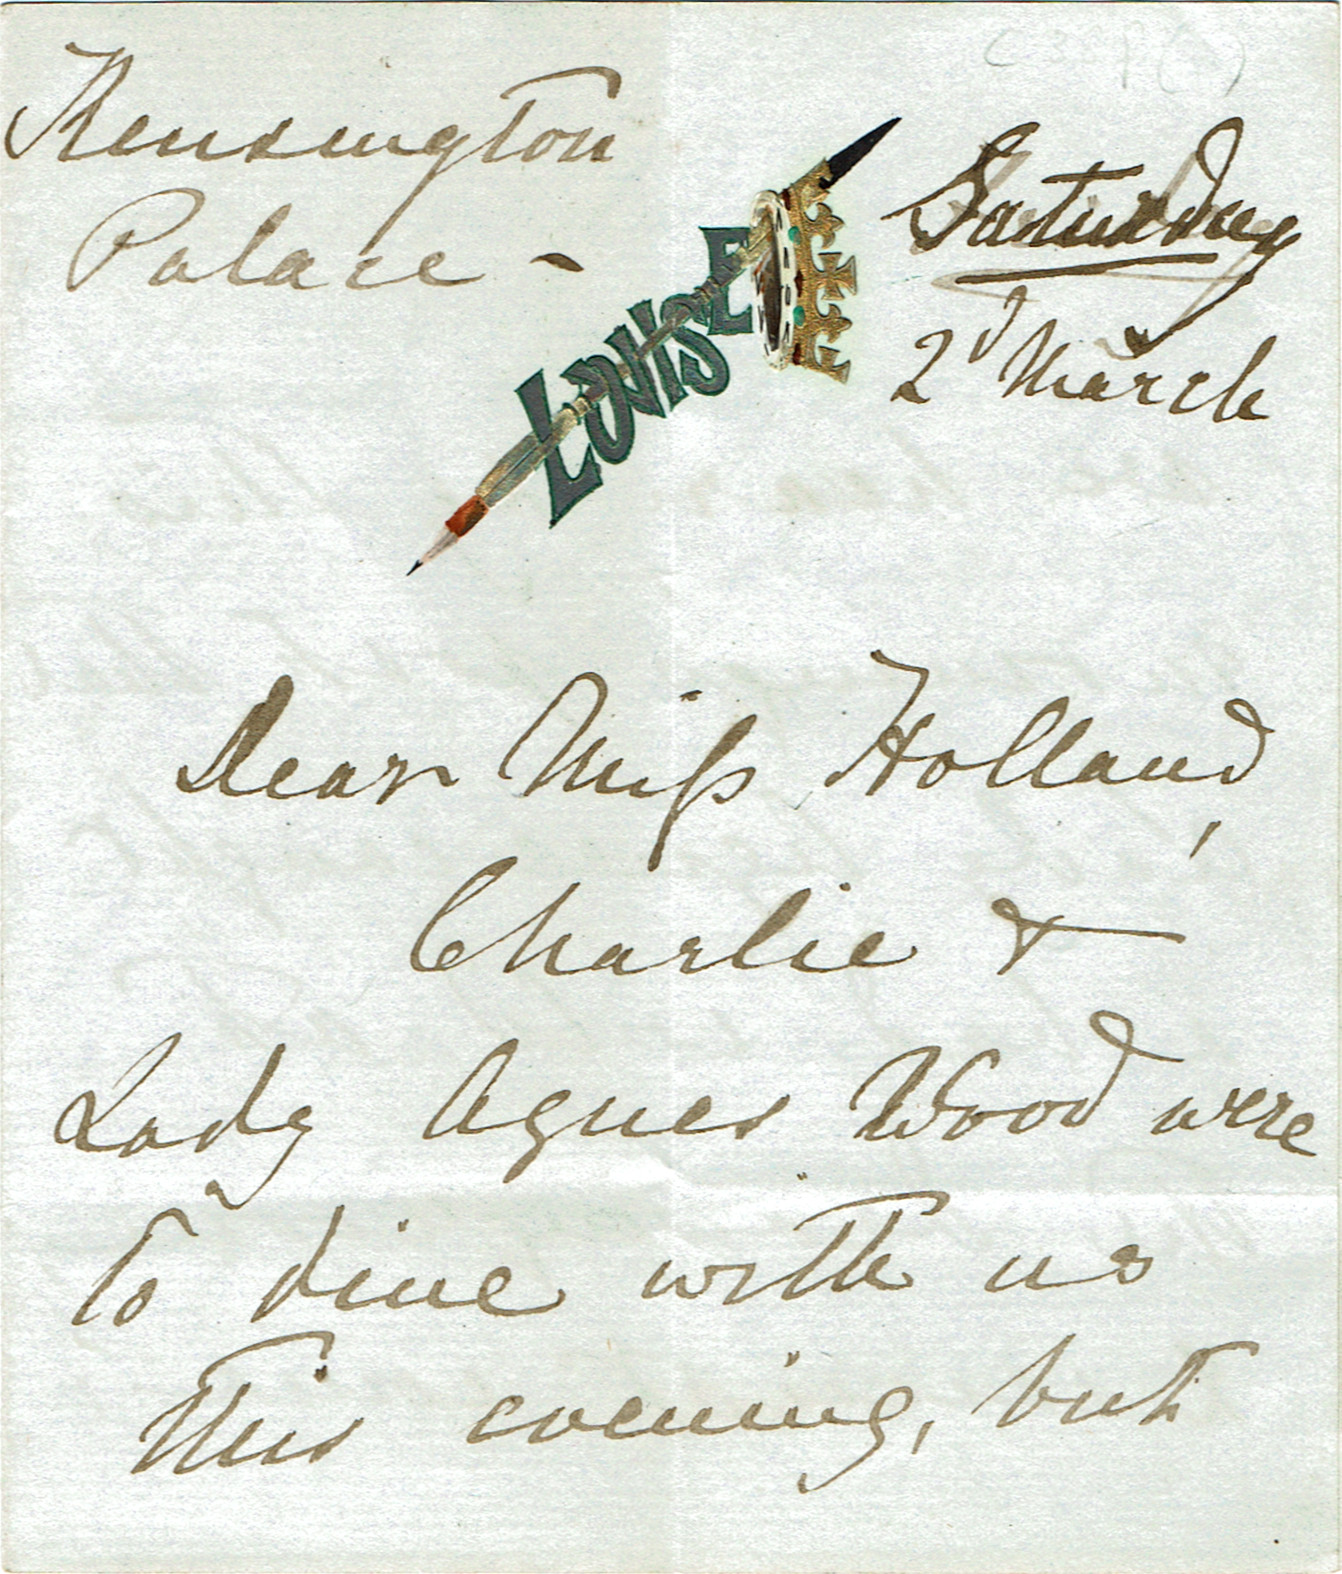 Kensington
Palace -
LOUISE
Saturday
2d March
Dear Miss Holland,
Charlie &
Lady Agnes Wood were
to dine with us
this evening, but